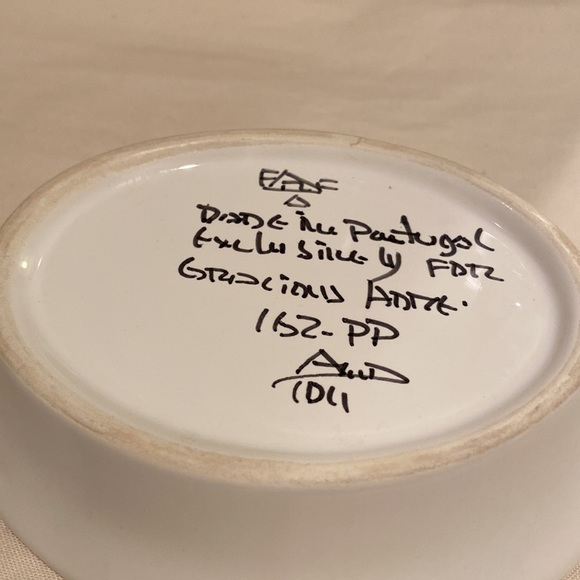 Made in Portugal
Exclusively FOR
Gracious Home.
162-PP